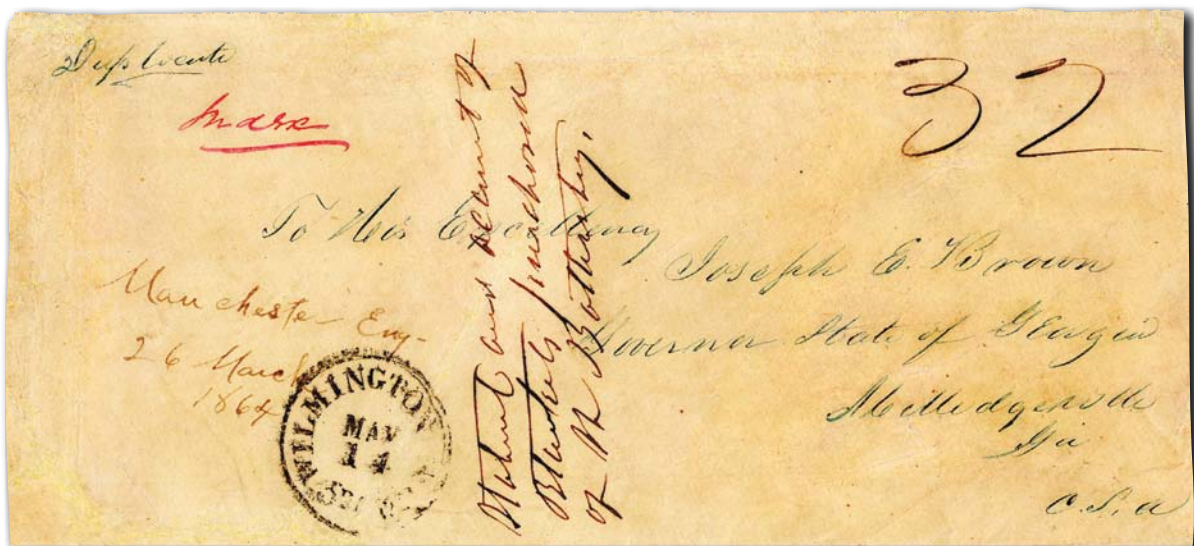 Duplicate
32
To His Excellency
Joseph E. Brown
Governor State of Georgia
Milledgeville
Ga
C.S.A
Manchester Eng-
26 March
1864
WILMINGTON
MAY
14
Statement and account of
Blankets purchased
of